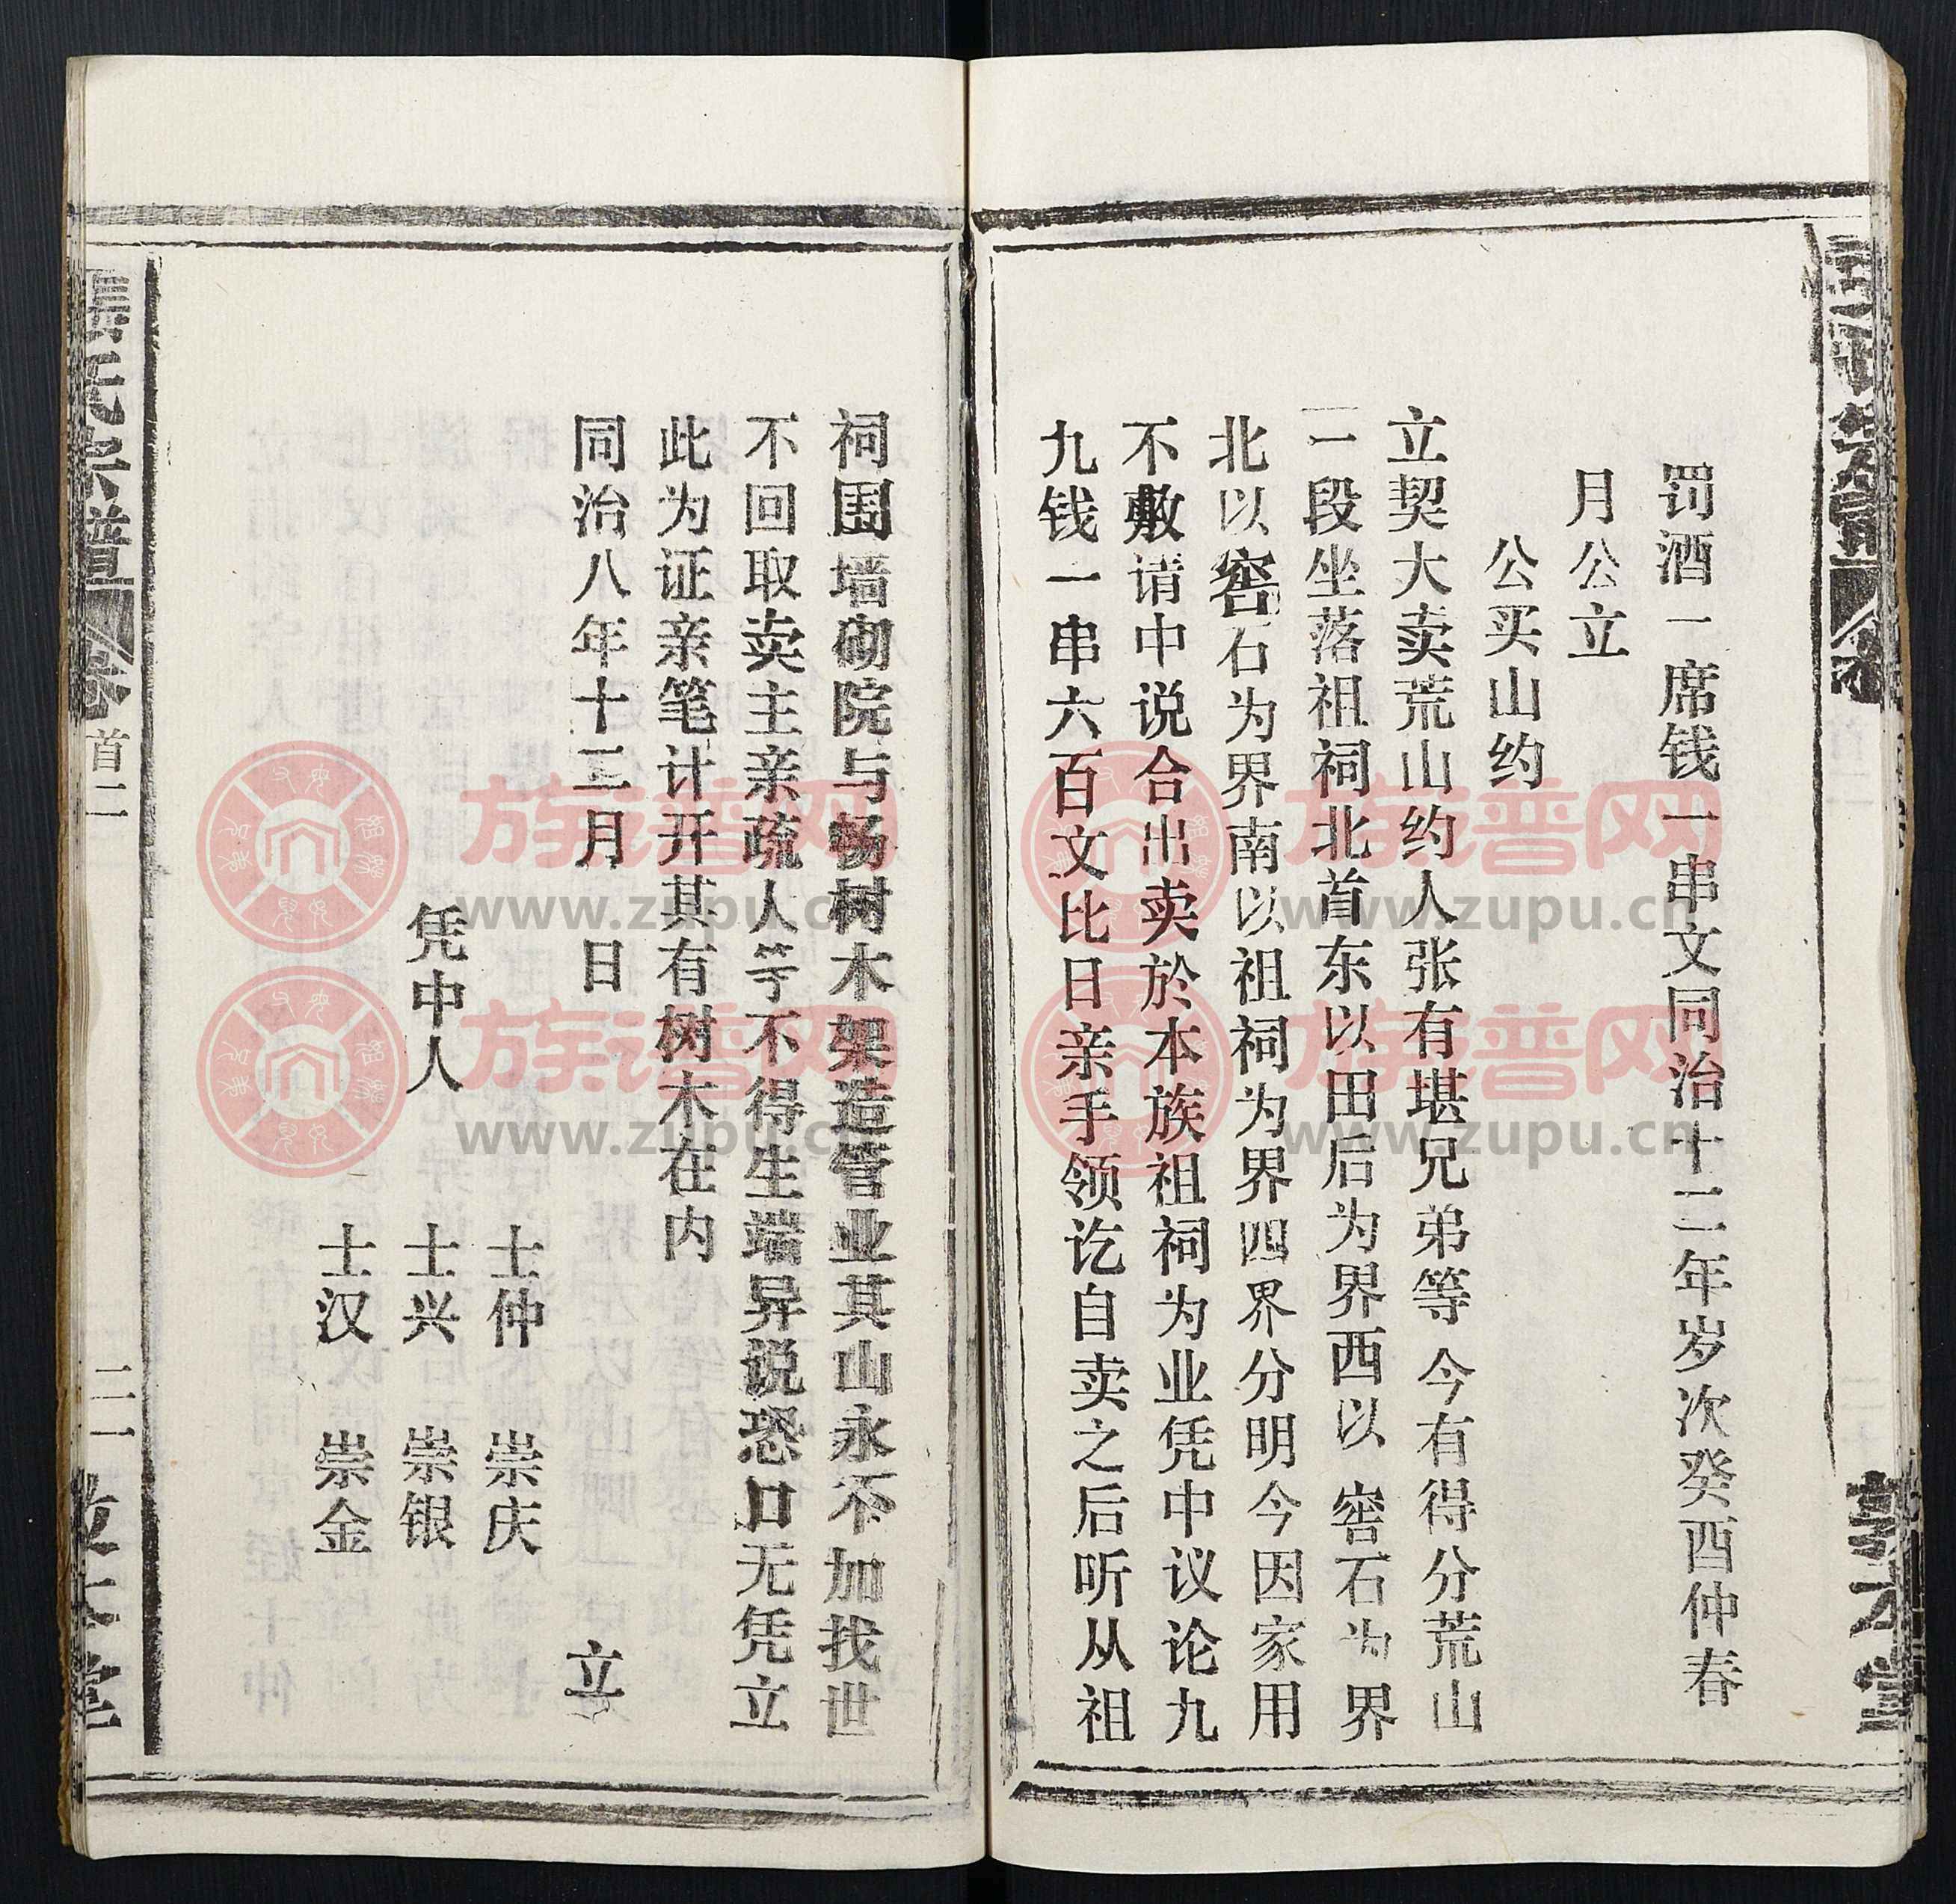 罚酒一席钱一串文同治十二年岁次癸酉仲春
月公立
公买山约
立契大卖荒山约人张有堪兄弟等今有得分荒山
一段坐落祖祠北首东以田后为界西以窖石为界
北以窖石为界南以祖祠为界四界分明今因家用
不敷请中说合出卖於本族祖祠为业凭中议论九
九钱一串六百文比日亲手领讫自卖之后听从祖
祠围墙砌院与畅树木架造管业其山永不加找世
不回取卖主亲疏人等不得生端异说恐口无凭立
此为证亲笔计开其有树木在内
同治八年十三月 日 立
士仲 崇庆
凭中人 士兴 崇银
士汉 崇金
张氏宗谱 卷首二 二一 敦本堂
族谱网
www.zupu.cn
族谱网
www.zupu.cn
族谱网
www.zupu.cn
族谱网
www.zupu.cn